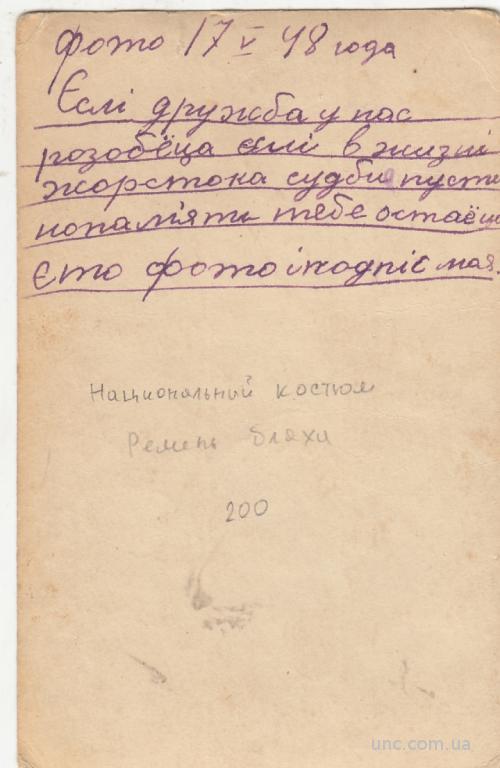 фото 17 V 48 года
Єслі дружба у нас
розобёца єслі в жизні
жорстока судба пусть
попамяти тебе остаёца
Єто фото і подпіс мая.
Национальный костюм
Ремень бляха
200
unc.com.ua